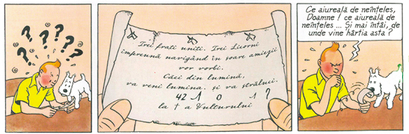 ? ? ? ? ? ?
Trei frați uniți. Trei Licorni
împreună navigând în soare amiezii
vor vorbi.
Căci din lumină,
va veni lumina, și va străluci.
42 1 0 1 ?
la † a Vulturului
Ce aiureală de neînțeles,
Doamne! ce aiureală de
neînțeles... Și mai întâi, de
unde vine hârtia asta?